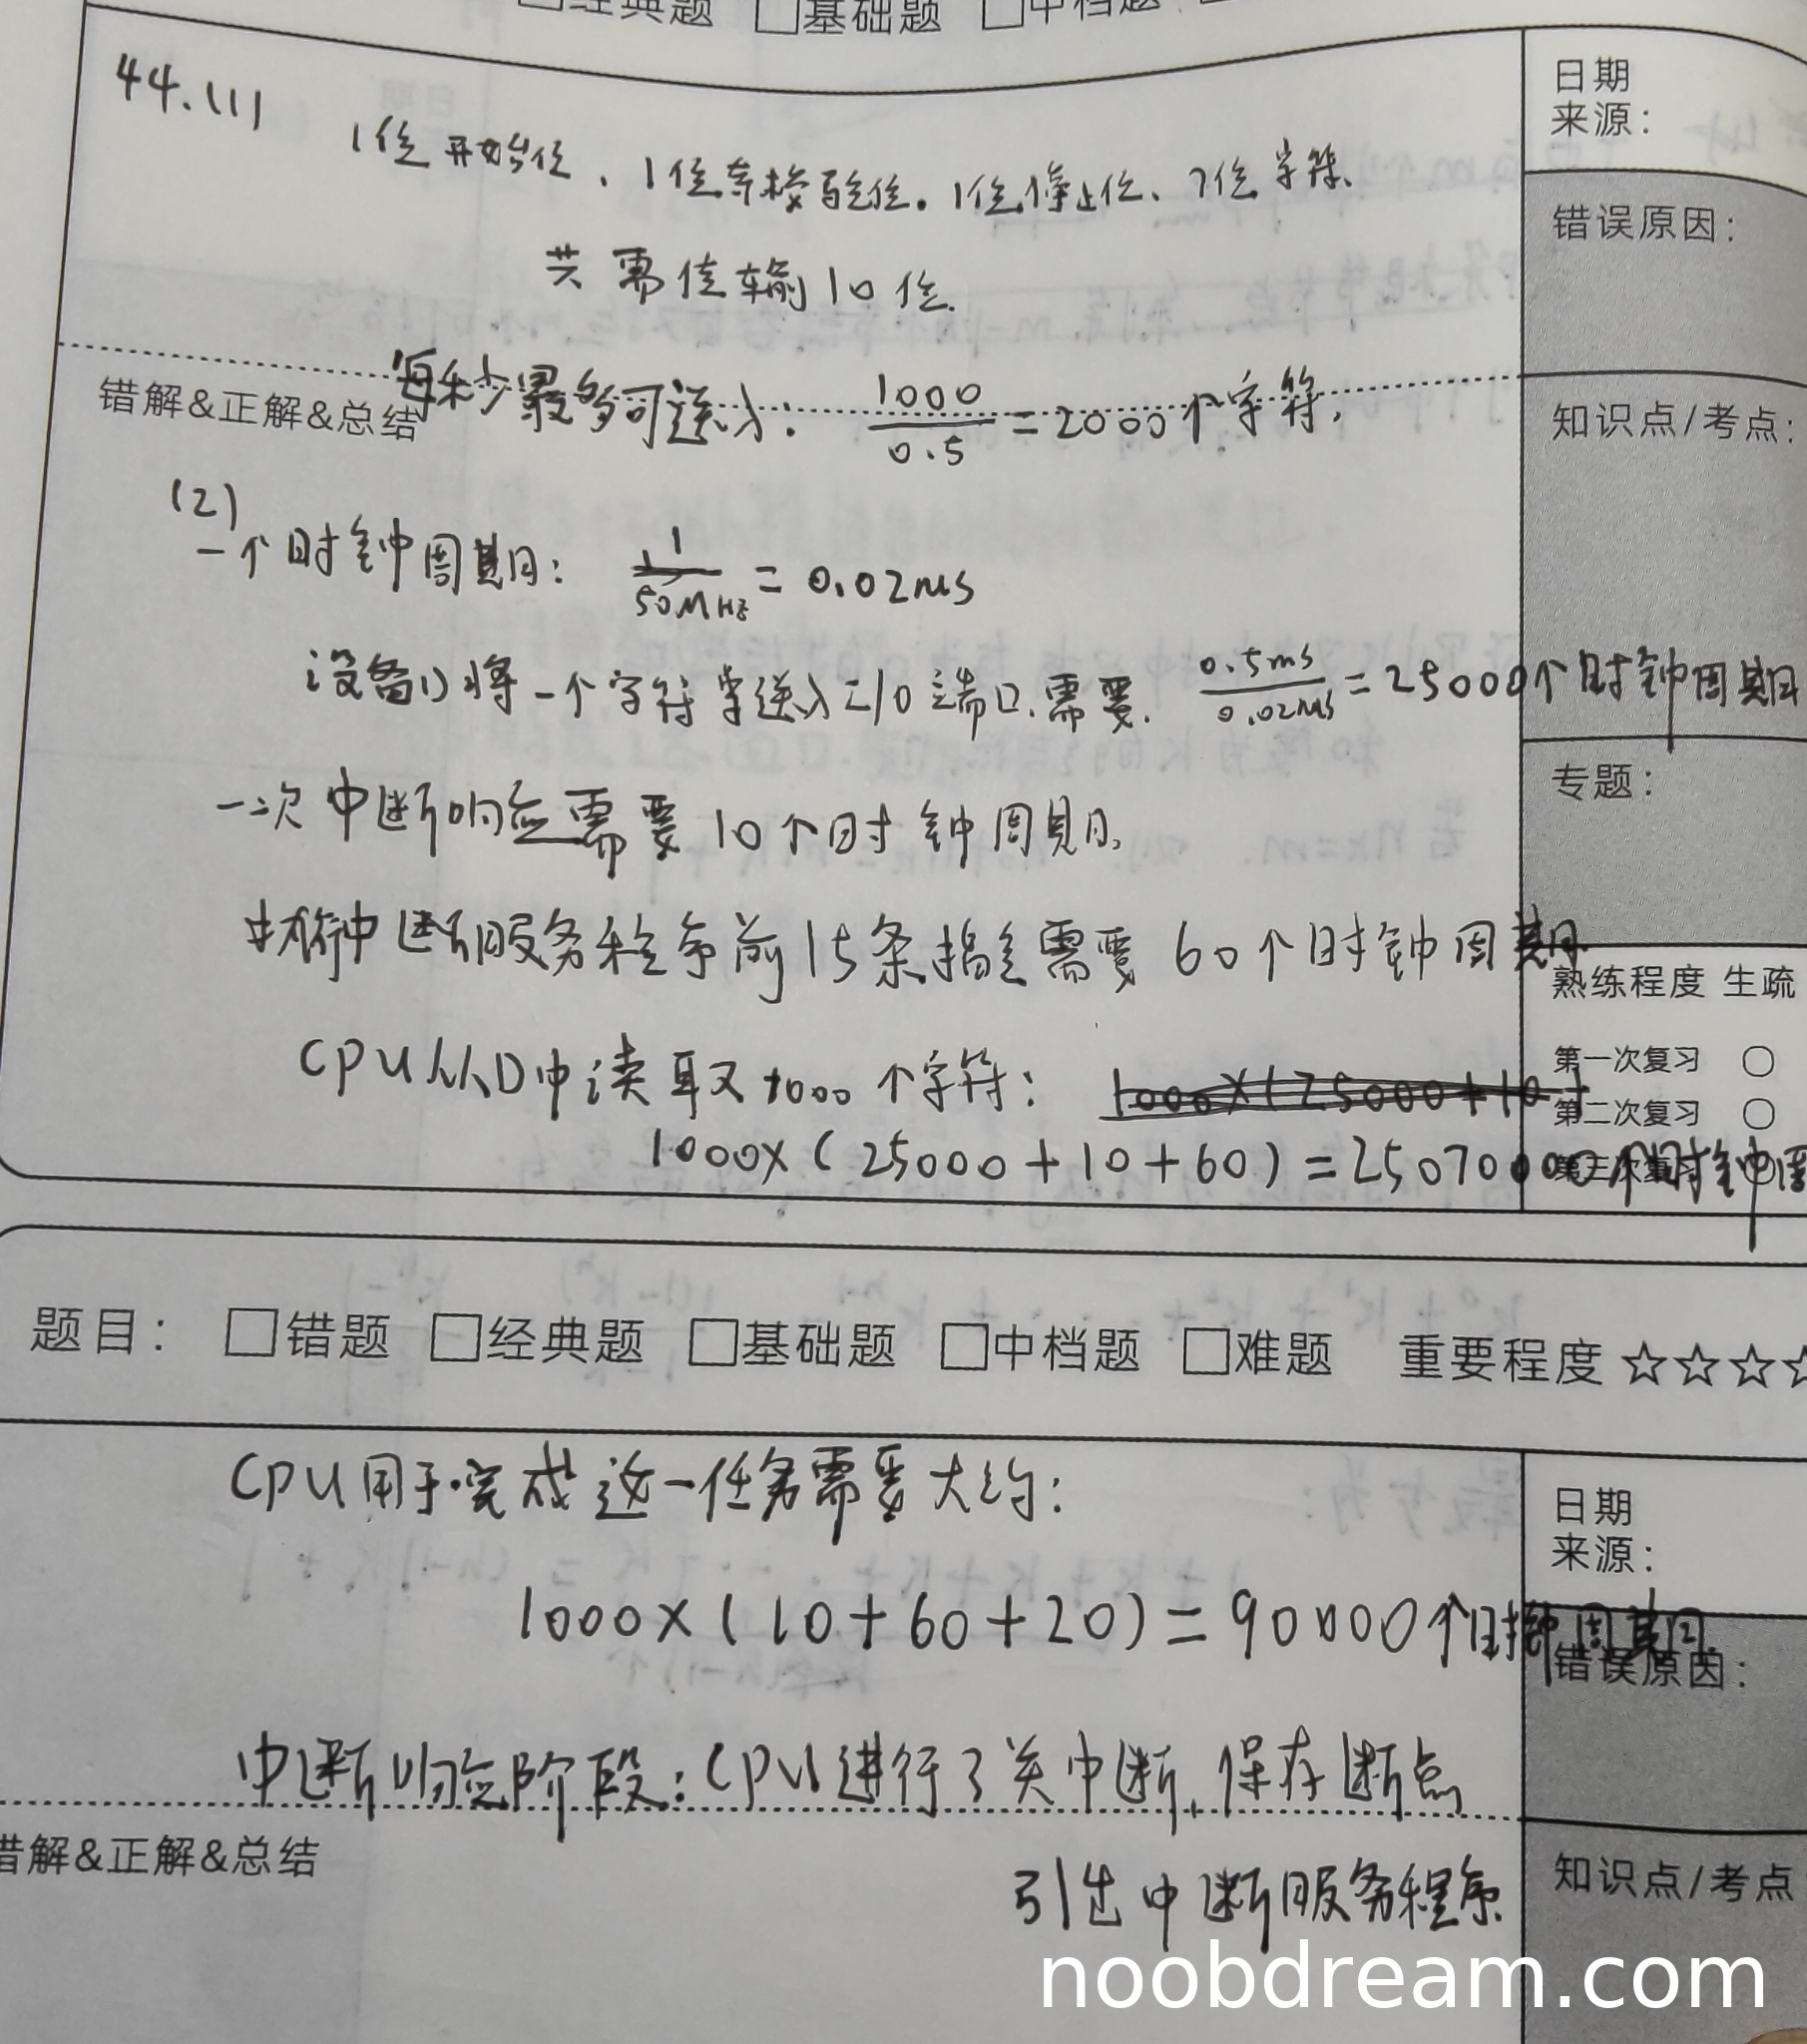 □经典题 □基础题 □中档题
44.(1)
1位开始位、1位奇校验位。1位停止位、7位字符、
共需传输10位.
每秒最多可送入: 1000/0.5=2000个字符.
(2)
一个时钟周期: 1/50MHz=0.02us
设备D将一个字符送入I/O端口需要. 0.5ms/0.02us=25000个时钟周期
一次中断响应需要10个时钟周期.
中断服务程序前15条指令需要60个时钟周期
CPU从D中读取1000个字符:
1000×(25000+10+60)=25070000个时钟周
错解&正解&总结
日期
来源:
错误原因:
知识点/考点:
专题:
熟练程度 生疏
第一次复习 ○
第二次复习 ○
第三次复习 ○
题目: □错题 □经典题 □基础题 □中档题 □难题 重要程度 ☆☆☆☆
CPU用于完成这一任务需要大约:
1000×(10+60+20)=90000个时钟周期.
中断响应阶段:CPU进行了关中断,保存断点
引出中断服务程序
错解&正解&总结
日期
来源:
错误原因:
知识点/考点
noobdream.com